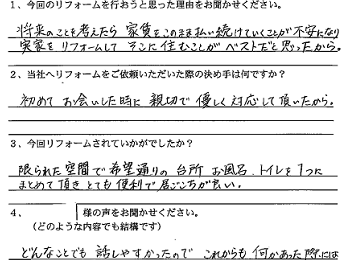 1、今回のリフォームを行おうと思った理由をお聞かせください。
将来のことも考えたら 家賃をこのまま払い続けていくことが不安になり
実家をリフォームして そこに住むことが ベストだと思ったから。
2、当社へリフォームをご依頼いただいた際の決め手は何ですか?
初めて お会いした時に 親切で 優しく対応して頂いたから。
3、今回リフォームされていかがでしたか?
限られた空間で希望通りの 台所 お風呂、トイレを1つに
まとめて頂き とても便利で居ごこちが良い。
4、 様の声をお聞かせください。
(どのような内容でも結構です)
どんなことでも 話しやすかったので これからも 何かあった際には